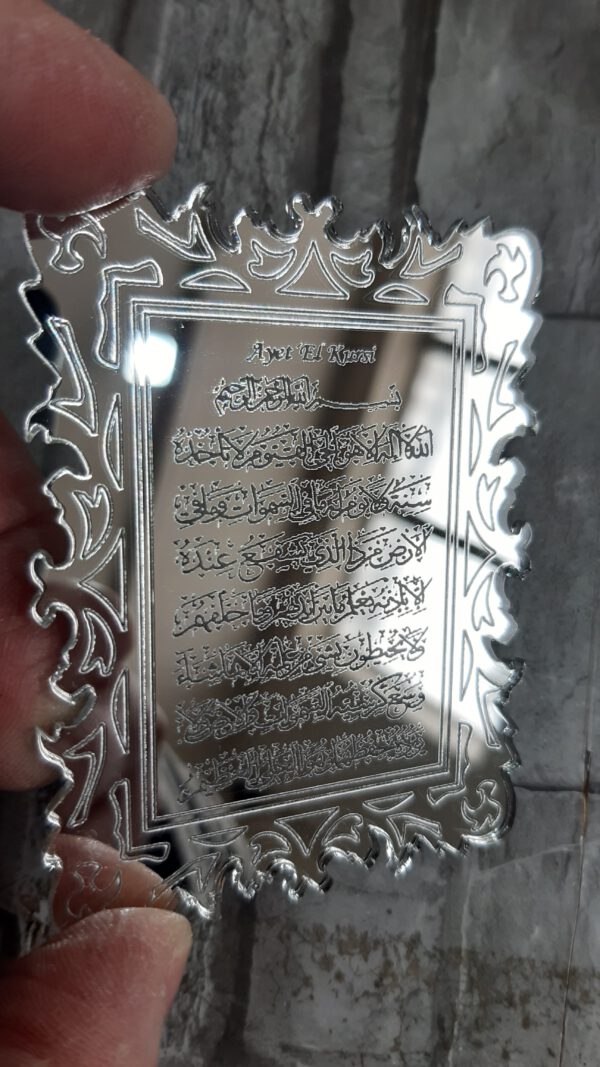 Ayet 'El Kursi
بسم الله الرحمن الرحيم
الله لا إله إلا هو الحي القيوم لا تأخذه
سنة ولا نوم له ما في السموات وما في
الأرض من ذا الذي يشفع عنده
إلا بإذنه يعلم ما بين أيديهم وما خلفهم
ولا يحيطون بشيء من علمه إلا بما شاء
وسع كرسيه السموات والأرض ولا
يؤوده حفظهما وهو العلي العظيم